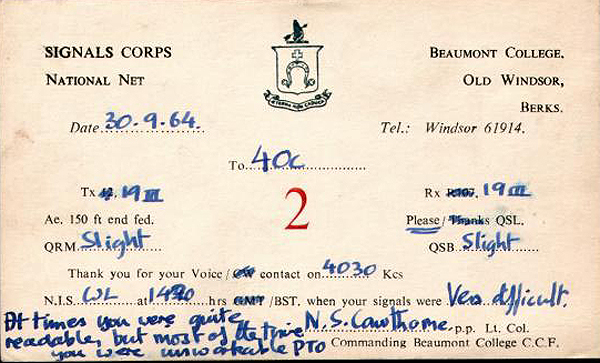 SIGNALS CORPS
NATIONAL NET
BEAUMONT COLLEGE,
OLD WINDSOR,
BERKS.
Date 30.9.64.
Tel.: Windsor 61914.
To 40C
Tx 12, 19 III
2
Rx R107, 19 III
Ae. 150 ft end fed.
Please / Thanks QSL.
QRM Slight
QSB Slight
Thank you for your Voice / CW contact on 4030 Kcs
N.I.S. WL at hrs GMT / BST. when your signals were Very difficult.
At times you were quite
readable, but most of the time
you were unworkable PTO
N.S. Cawthorne p.p. Lt. Col.
Commanding Beaumont College C.C.F.